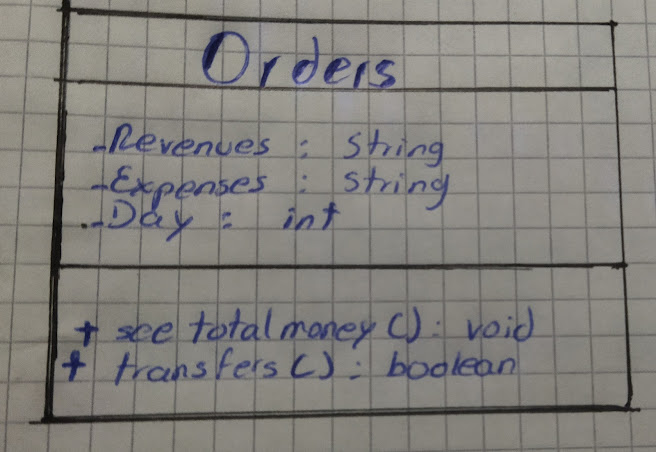 Orders
-Revenues : String
-Expenses : String
-Day : int
+ see total money () : void
+ transfers () : boolean